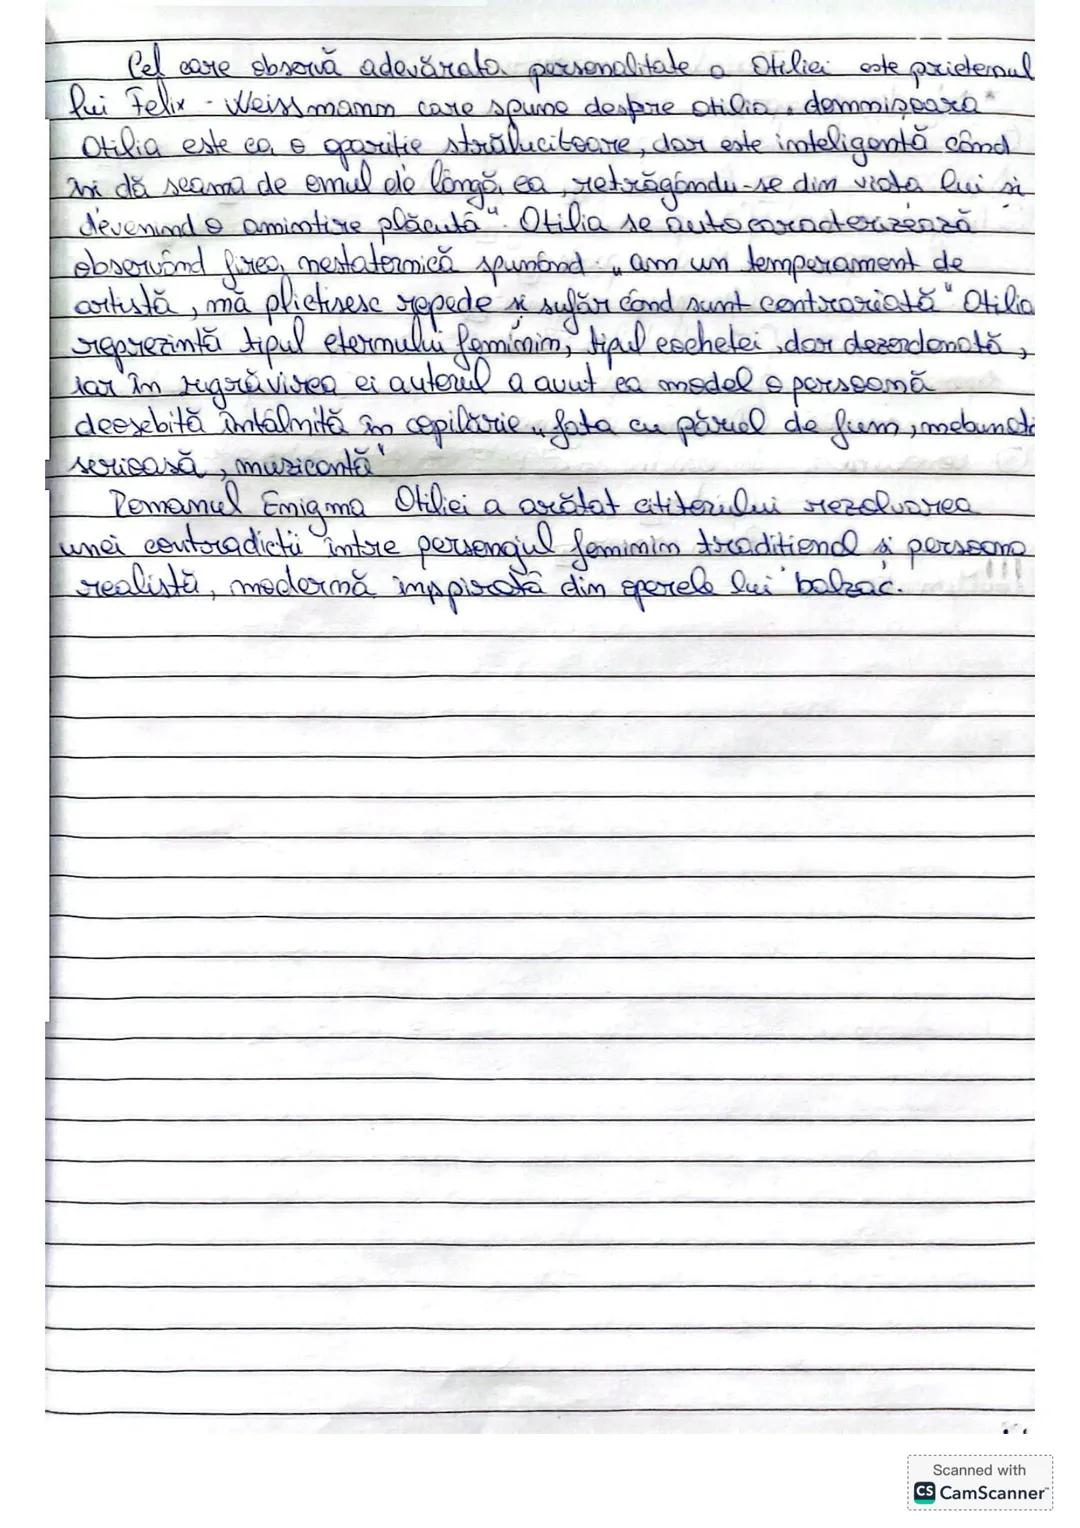 Cel care observă adevărata personalitate a Otiliei este prietenul
lui Felix - Weissmann care spune despre otilia „domnișoara
Otilia este ca o apariție strălucitoare, dar este inteligentă când
își dă seama de omul de lângă ea, retrăgându-se din viata lui si
devenind o amintire plăcută". Otilia se autocaracterizează
observând firea nestatornică spunând: „am un temperament de
artistă, mă plictisesc repede și sufăr când sunt contrariată" Otilia
reprezintă tipul eternului feminin, tipul cochetei, dar dezordonată,
iar în zugrăvirea ei autorul a avut ca model o persoană
deosebită întâlnită în copilărie „fata cu părul de fum,
serioasă, muzicantă"
Romanul Enigma Otiliei a arătat cititorului rezolvarea
unei contradictii între personajul feminin traditional si persoana
realistă, modernă inspirată din operele lui balzac.
Scanned with
CS CamScanner